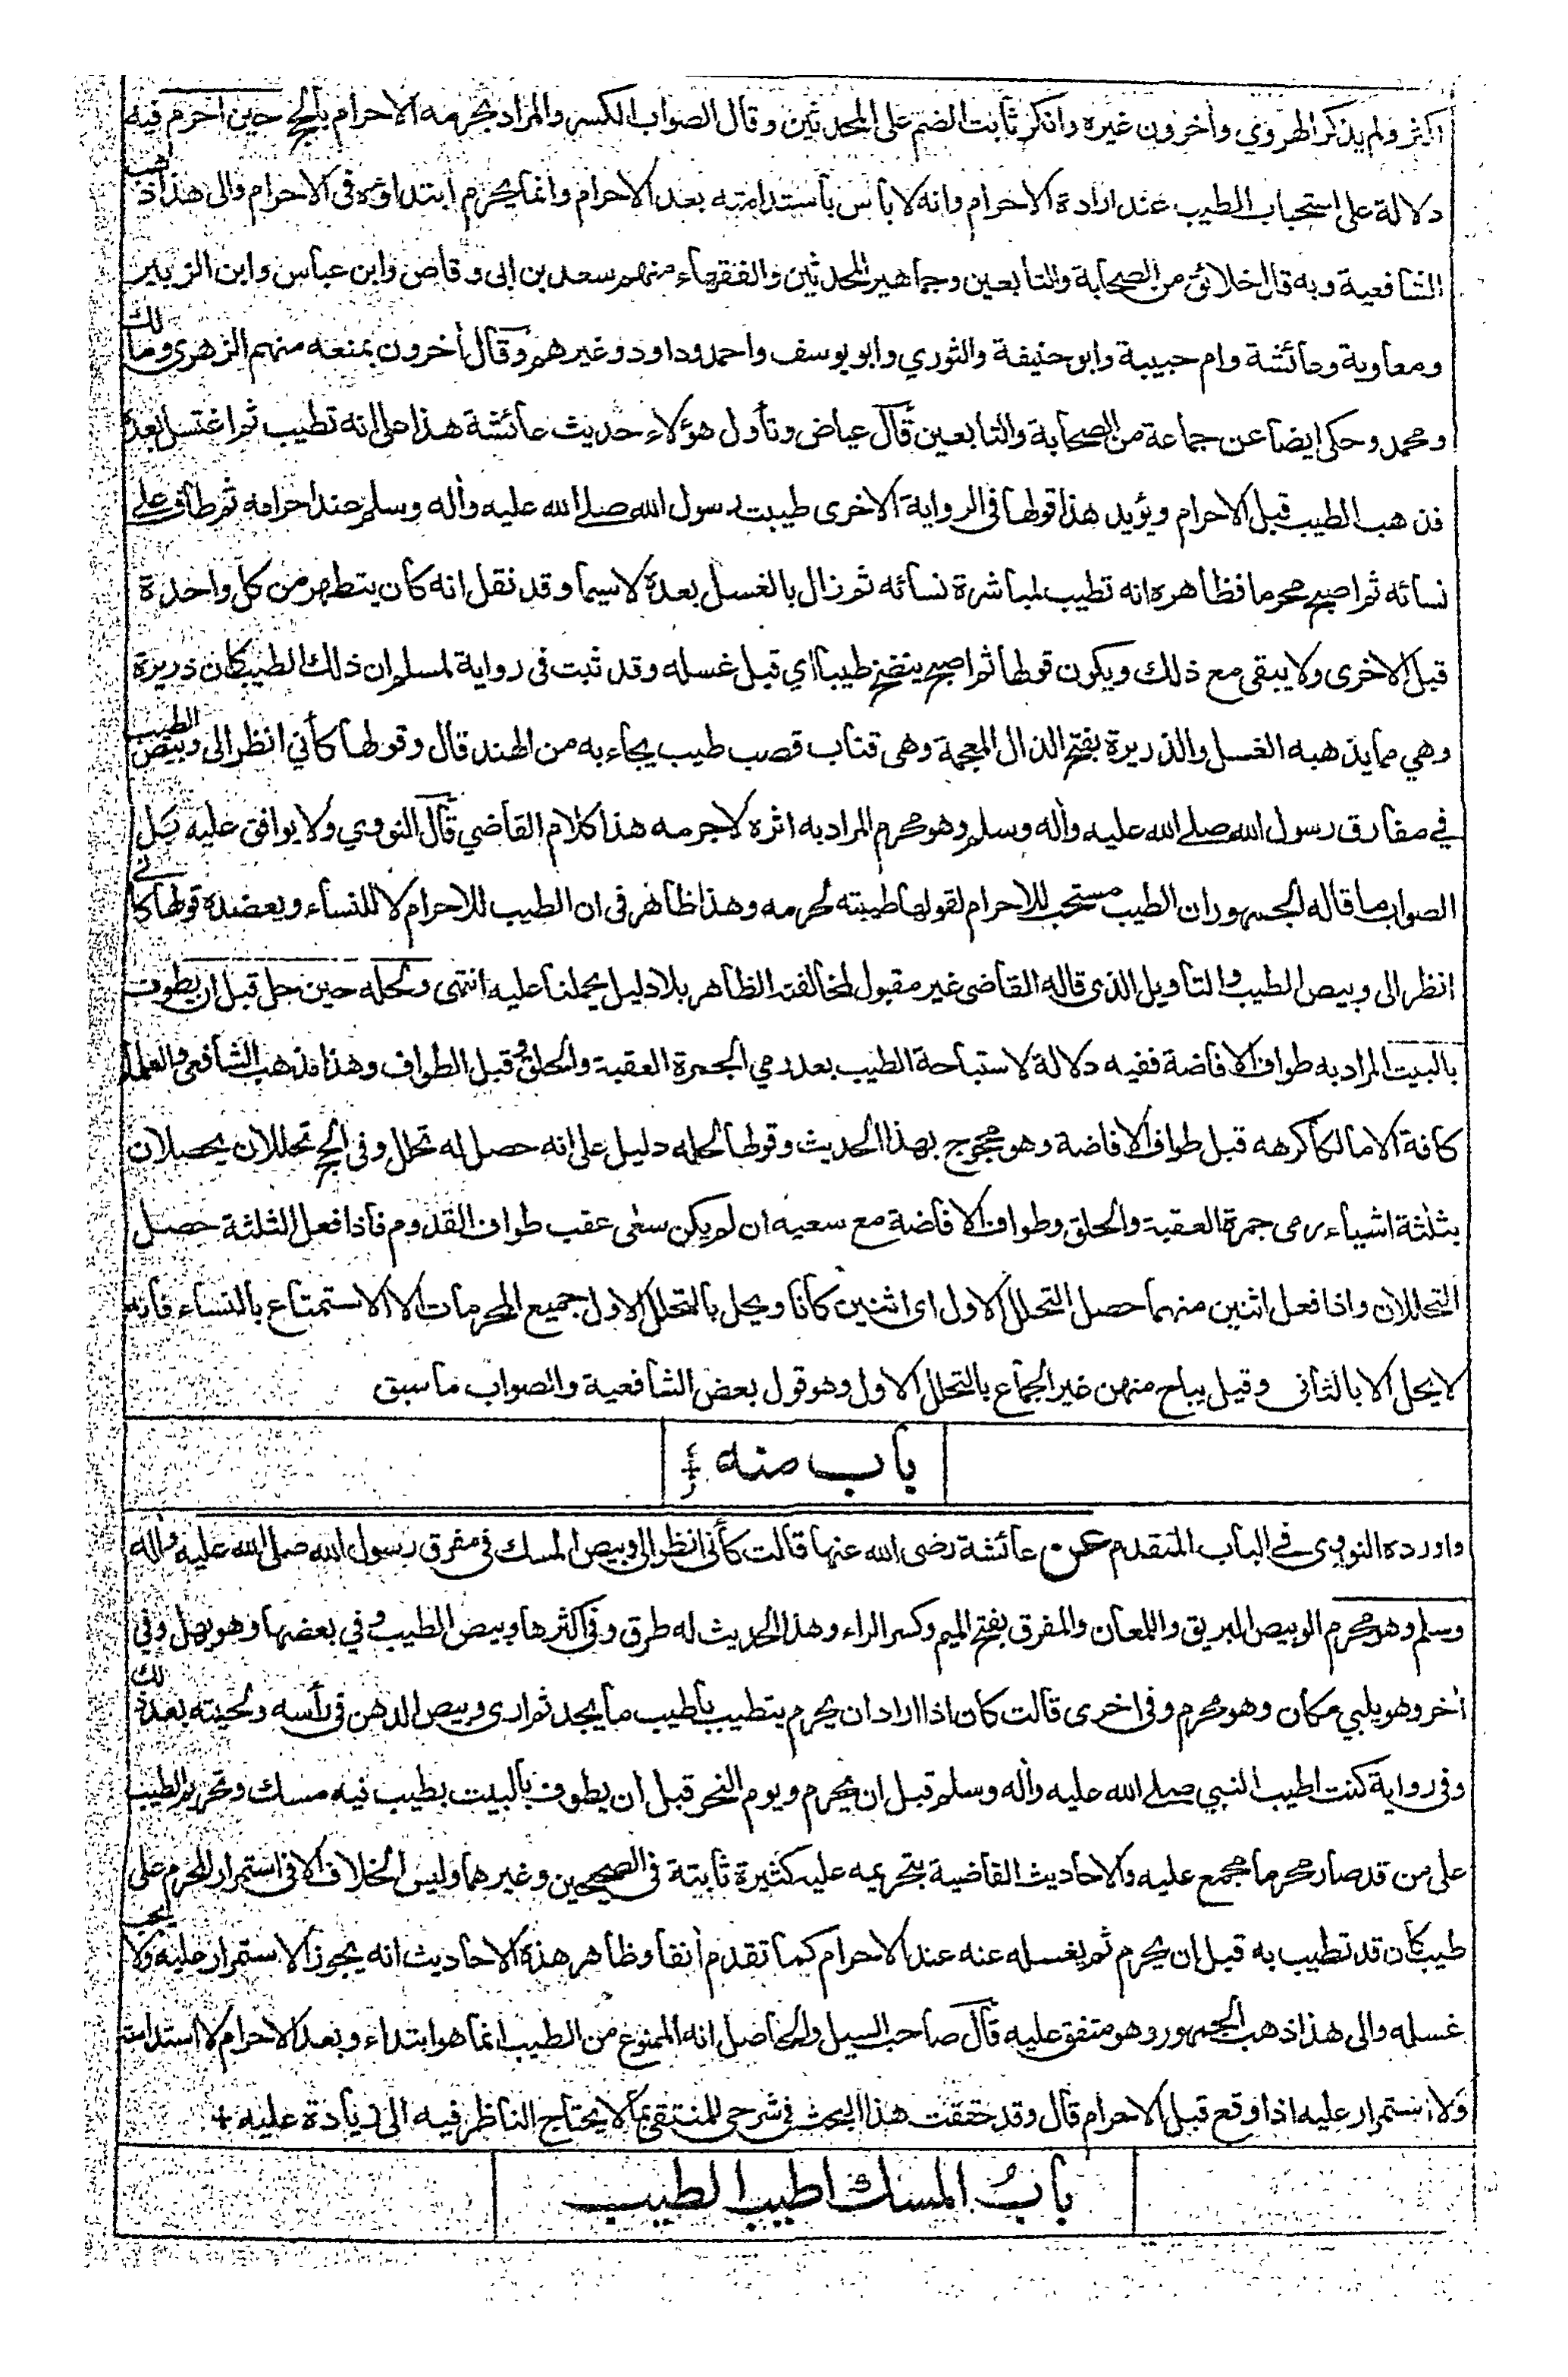 اكثر ولم يذكر الهروي وأخرون غيره وانكر ثابت الضم على المحدثين وقال الصواب الكسر والمراد بحرمه الاحرام بالحج حين احرم فيه
دلالة على استحباب الطيب عند ارادة الاحرام وانه لا بأس باستدامته بعد الاحرام وانما يحرم ابتداؤه فى الاحرام والى هذا ذهب
الشافعية وبه قال خلائق من الصحابة والتابعين وجماهير المحدثين والفقهاء منهم سعد بن ابى وقاص وابن عباس وابن الزبير
ومعاوية وعائشة وام حبيبة وابو حنيفة والثوري وابو يوسف واحمد وداود وغيرهم وقال أخرون بمنعه منهم الزهرى ومالك
ومحمد وحكى ايضا عن جماعة من الصحابة والتابعين قال عياض وتأول هؤلاء حديث عائشة هذا على انه تطيب ثم اغتسل بعده
فذهب الطيب قبل الاحرام ويؤيد هذا قولها فى الرواية الاخرى طيبت رسول الله صلے الله عليه وأله وسلم عند احرامه ثم طاف على
نسائه ثم اصبح محرما فظاهره انه تطيب لمباشرة نسائه ثم زال بالغسل بعده لاسيما وقد نقل انه كان يتطهر من كل واحدة
قبل الاخرى ولا يبقى مع ذلك ويكون قولها ثم اصبح ينضخ طيبا اي قبل غسله وقد ثبت فى رواية لمسلم ان ذلك الطيب كان ذريرة
وهي مما يذهبه الغسل والذريرة بفتح الذال المعجمة وهى فتاب قصب طيب يجاء به من الهند قال وقولها كأني انظر الى وبيص الطيب
في مفارق رسول الله صلے الله عليه وأله وسلم وهو محرم المراد به اثره لاجرمه هذا كلام القاضي قال النووي ولا يوافق عليه بل
الصواب ما قاله الجمهور ان الطيب مستحب للاحرام لقولها طيبته لحرمه وهذا ظاهر فى ان الطيب للاحرام لا للنساء ويعضده قولها كانے
انظر الى وبيص الطيب والتأويل الذى قاله القاضى غير مقبول لمخالفته الظاهر بلا دليل يحملنا عليه انتهى ولحله حين حل قبل ان يطوف
بالبيت المراد به طواف الافاضة ففيه دلالة لاستباحة الطيب بعد رمي الجمرة العقبة والحلق وقبل الطواف وهذا مذهب الشافعى والعلماء
كافة الا مالكا كرهه قبل طواف الافاضة وهو محجوج بهذا الحديث وقولها لحله دليل على انه حصل له تحلل وفى الحج تحللان يحصلان
بثلثة اشياء رمى جمرة العقبة والحلق وطواف الافاضة مع سعيه ان لم يكن سعى عقب طواف القدوم فاذا فعل الثلثة حصل
التحللان واذا فعل اثنين منهما حصل التحلل الاول اى اثنين كانا ويحل بالتحلل الاول جميع المحرمات الا الاستمتاع بالنساء فانه
لا يحل الا بالثانى وقيل يباح منهن غير الجماع بالتحلل الاول وهو قول بعض الشافعية والصواب ما سبق
باب منه
واورده النووى فے الباب المتقدم عن عائشة رضى الله عنها قالت كأنى انظر الى وبيص المسك فى مفرق رسول الله صلى الله عليه وأله
وسلم وهو محرم الوبيص البريق واللمعان والمفرق بفتح الميم وكسر الراء وهذا الحديث له طرق وفى اكثرها وبيص الطيب وفي بعضها وهو يهل وفي
أخر وهو يلبي مكان وهو محرم وفى اخرى قالت كان اذا اراد ان يحرم يتطيب بأطيب ما يجد ثم ارى وبيص الدهن فى رأسه ولحيته بعد ذلك
وفى رواية كنت اطيب النبي صلے الله عليه وأله وسلم قبل ان يحرم ويوم النحر قبل ان يطوف بالبيت بطيب فيه مسك وتحريم الطيب
على من قد صار محرما مجمع عليه والاحاديث القاضية بتحريمه عليه كثيرة ثابتة فى الصحيحين وغيرهما وليس الخلاف الا فى استمرار المحرم على
طيب كان قد تطيب به قبل ان يحرم ثم يغسله عنه عند الاحرام كما تقدم أنفا وظاهر هذه الاحاديث انه يجوز الاستمرار عليه ولا يجب
غسله والى هذا ذهب الجمهور وهو متفق عليه قال صاحب السيل والحاصل انه الممنوع من الطيب انما هو ابتداء وبعد الاحرام لا استدامته
ولا استمرار عليه اذا وقع قبل الاحرام قال وقد حققت هذا البحث فى شرحى للمنتقى بما لا يحتاج الناظر فيه الى زيادة عليه +
باب المسك اطيب الطيب